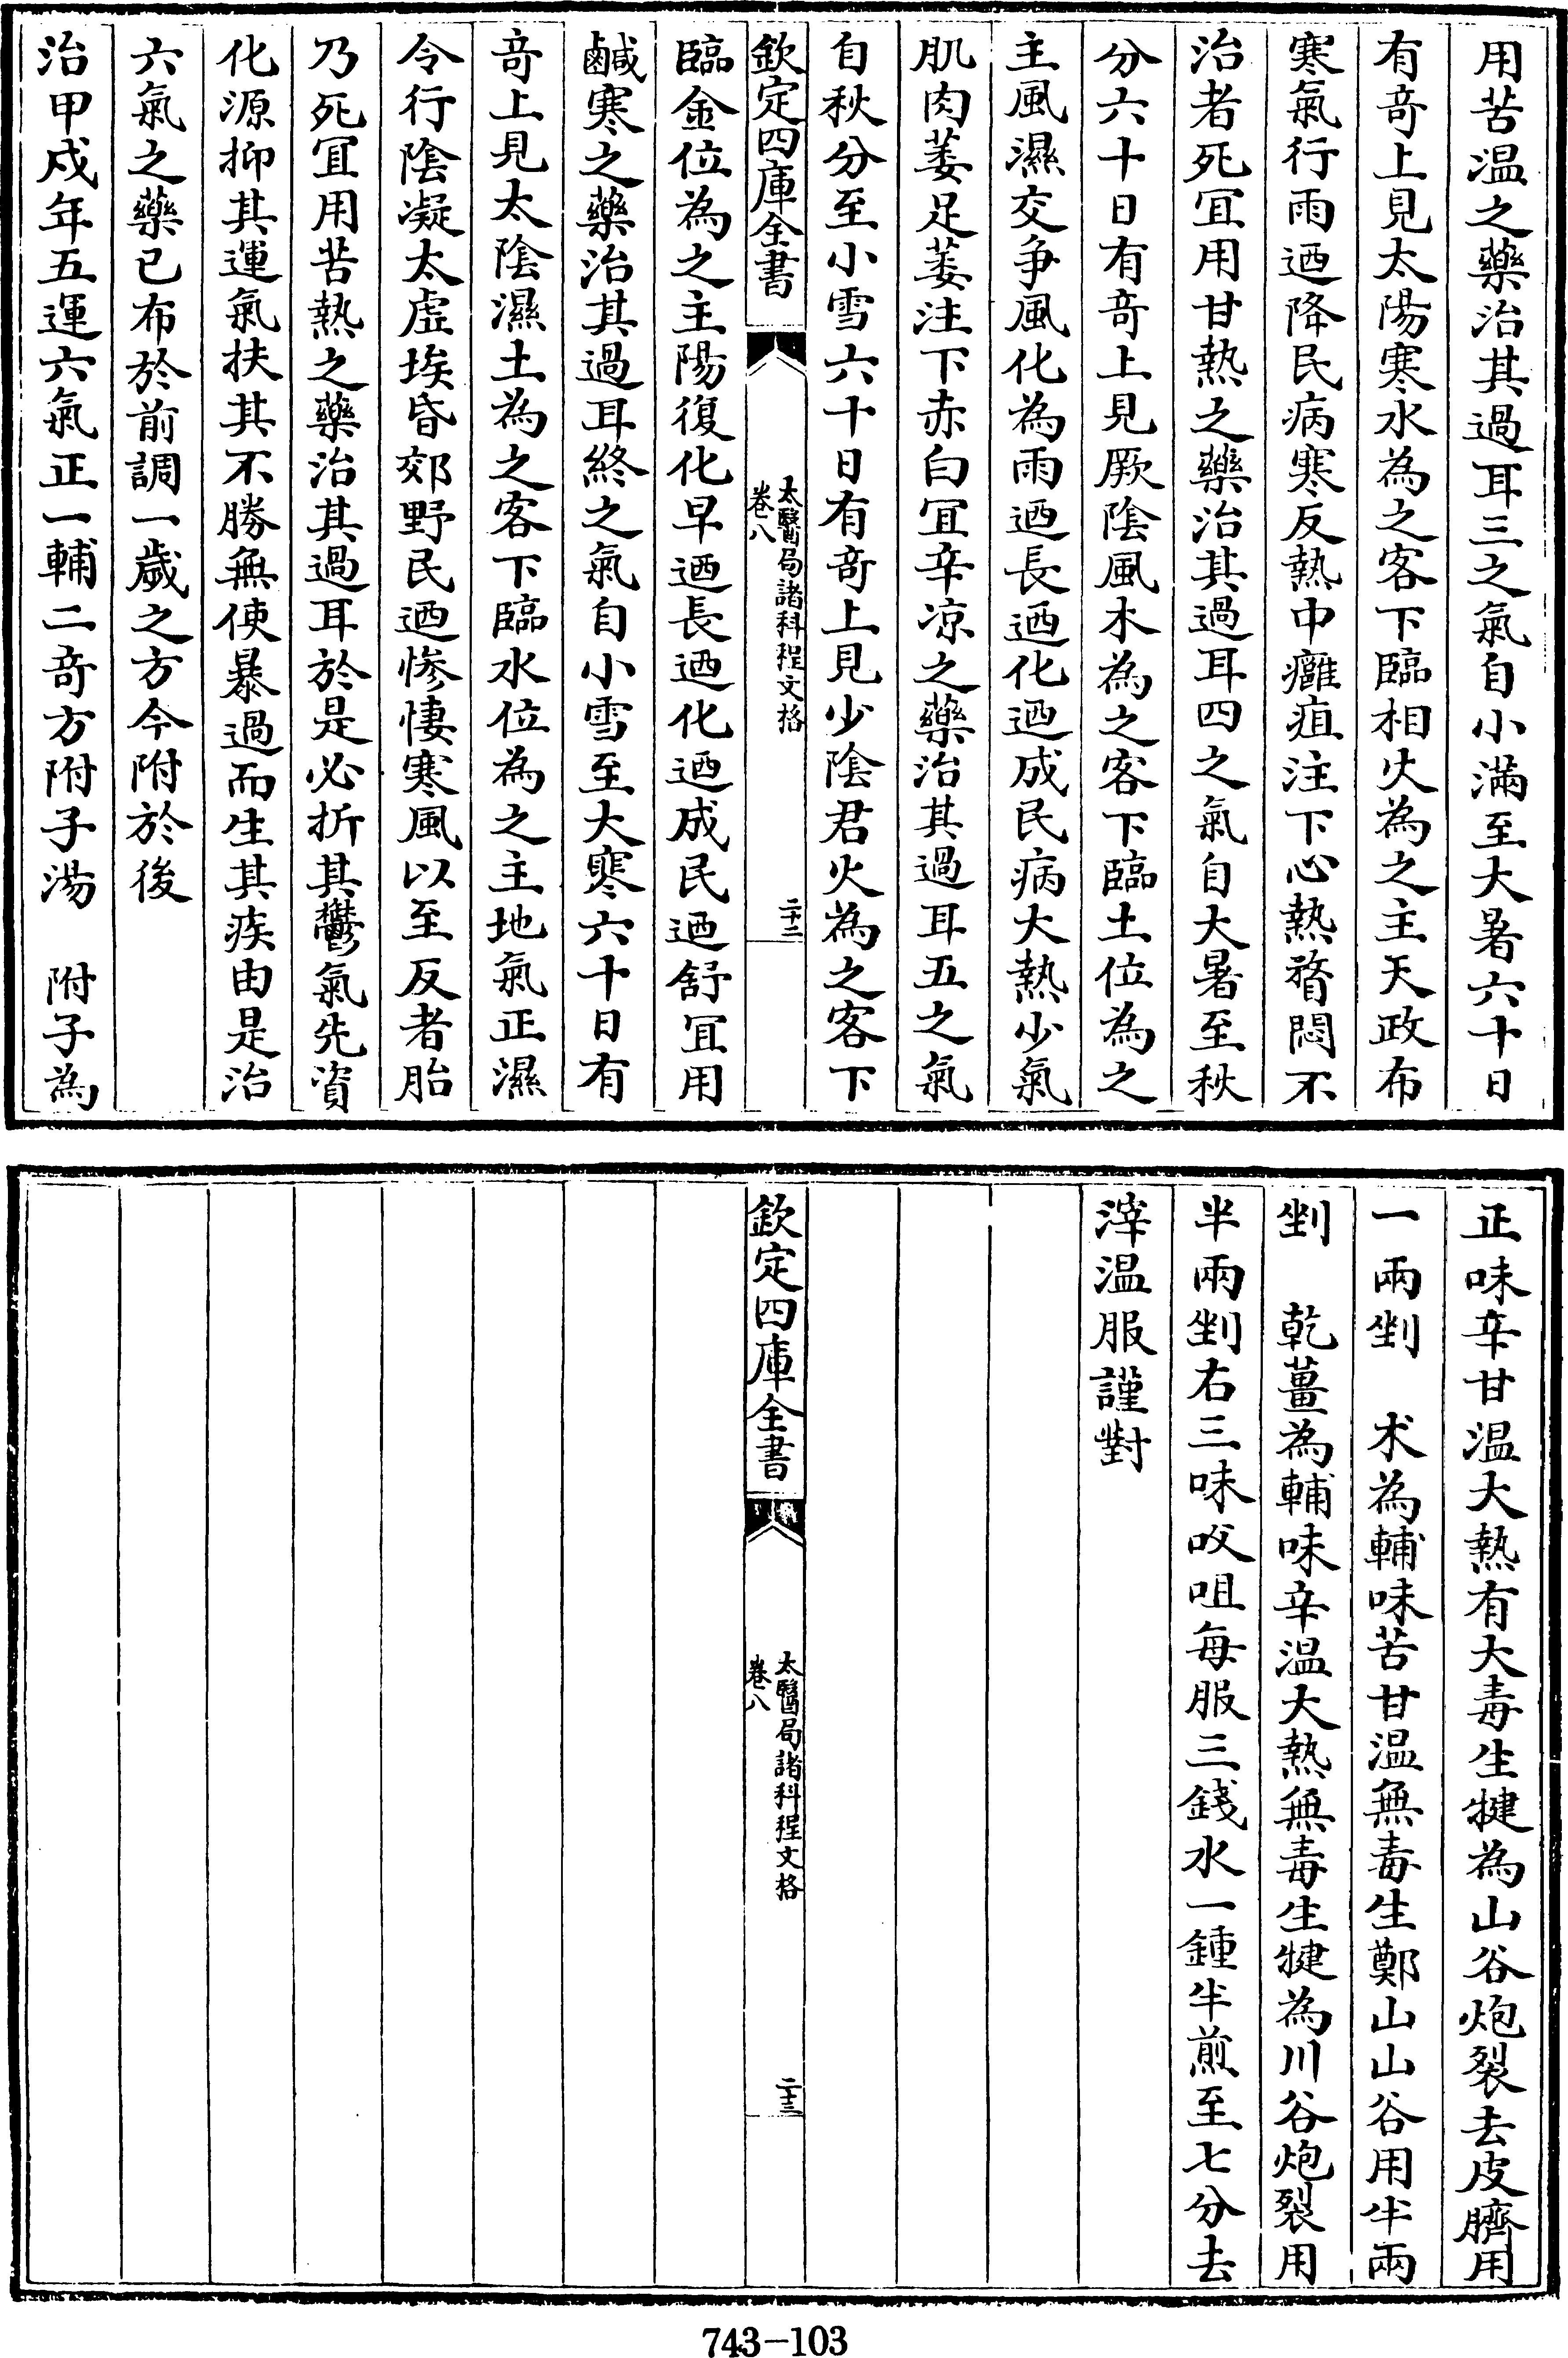 用苦温之藥治其過耳三之氣自小滿至大暑六十日
有竒上見太陽寒水為之客下臨相火為之主天政布
寒氣行雨迺降民病寒反熱中癰疽注下心熱瞀悶不
治者死冝用甘熱之藥治其過耳四之氣自大暑至秋
分六十日有竒上見厥隂風木為之客下臨土位為之
主風濕交争風化為雨迺長迺化迺成民病大熱少氣
肌肉萎足萎注下赤白冝辛凉之藥治其過耳五之氣
自秋分至小雪六十日有竒上見少隂君火為之客下
欽定四庫全書
太醫局諸科程文格
卷八
二十二
臨金位為之主陽復化早迺長迺化迺成民迺舒冝用
鹹寒之藥治其過耳終之氣自小雪至大寒六十日有
竒上見太隂濕土為之客下臨水位為之主地氣正濕
令行隂凝太虛埃昏郊野民迺慘悽寒風以至反者胎
乃死冝用苦熱之藥治其過耳於是必折其鬱氣先資
化源抑其運氣扶其不勝無使暴過而生其疾由是治
六氣之藥已布於前調一歲之方今附於後
治甲戍年五運六氣正一輔二竒方附子湯　附子為
正味辛甘温大熱有大毒生犍為山谷炮裂去皮臍用
一兩剉　术為輔味苦甘温無毒生鄭山山谷用半兩
剉　乾薑為輔味辛温大熱無毒生犍為川谷炮裂用
半兩剉右三味㕮咀每服三錢水一鍾半煎至七分去
滓温服謹對
欽定四庫全書
太醫局諸科程文格
卷八
二十三
743-103